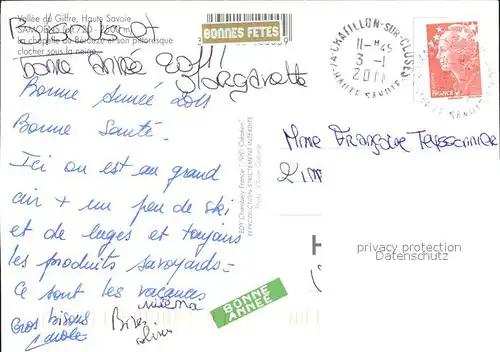 Vallée du Giffre, Haute Savoie
SAMOËNS
la chapelle de Bérouze et son pittoresque
clocher sous la neige.
BONNES FÊTES
Bonne Année 2011!
Margaretta
Bonne Année 2011
Bonne Santé.
Ici on est au grand
air + un peu de ski
et de luges et toujours
les produits savoyards =
ce sont les vacances
Gros bisous
Carole
Bises
BONNE
ANNÉE
EDY Chambéry France
REPRODUCTION STRICTEMENT INTERDITE
74-CHATILLON-SUR-CLUSES
11-H45
3-1
2011
HAUTE SAVOIE
FRANCE
Mme Françoise
privacy protection
Datenschutz